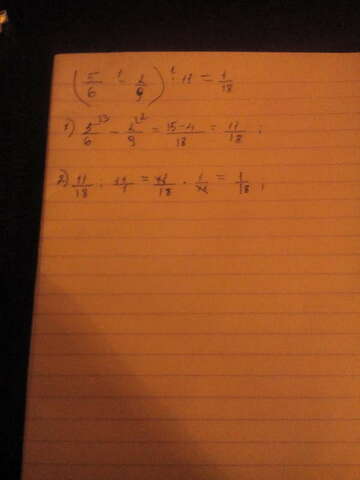 (5/6 - 2/9) : 11 = 1/18
1) 5/6 - 2/9 = 15-4/18 = 11/18 ;
2) 11/18 : 11/1 = 11/18 · 1/11 = 1/18 ;